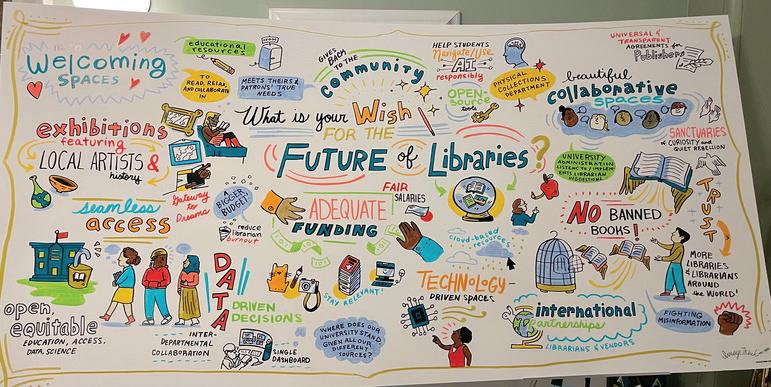 Welcoming
SPACES
educational
resources
TO
READ, RELAX,
AND COLLABORATE
IN
MEETS THEIRS &
PATRONS' TRUE
NEEDS
GIVES
BACK
TO THE
COMMUNITY
HELP STUDENTS
Navigate/USE
AI
responsibly
OPEN-
SOURCE
tools
PHYSICAL
COLLECTIONS
DEPARTMENT
UNIVERSAL &
TRANSPARENT
AGREEMENTS for
Publishers
beautiful
collaborative
spaces
What is your Wish
FOR THE
FUTURE of Libraries?
exhibitions
featuring
LOCAL ARTISTS &
history
Gateway
to
Dreams
SANCTUARIES
of CURIOSITY and
QUIET REBELLION
UNIVERSITY
ADMINISTRATION
LISTENS TO / IMPLEM-
ENTS LIBRARIAN
SUGGESTIONS
seamless
access
BIGGER
BUDGET
reduce
librarian
burnout
FAIR
SALARIES
ADEQUATE
FUNDING
cloud-based
resources
NO BANNED
BOOKS!
TRUST
MORE
LIBRARIES
& LIBRARIANS
AROUND
the WORLD!
open,
equitable
EDUCATION, ACCESS,
DATA SCIENCE
INTER-
DEPARTMENTAL
COLLABORATION
DATA
DRIVEN
DECISIONS
SINGLE
DASHBOARD
STAY RELEVANT!
WHERE DOES OUR
UNIVERSITY STAND
GIVEN ALL OUR
DIFFERENT
SOURCES?
TECHNOLOGY-
DRIVEN SPACES
international
partnerships
LIBRARIANS & VENDORS
FIGHTING
MISINFORMATION